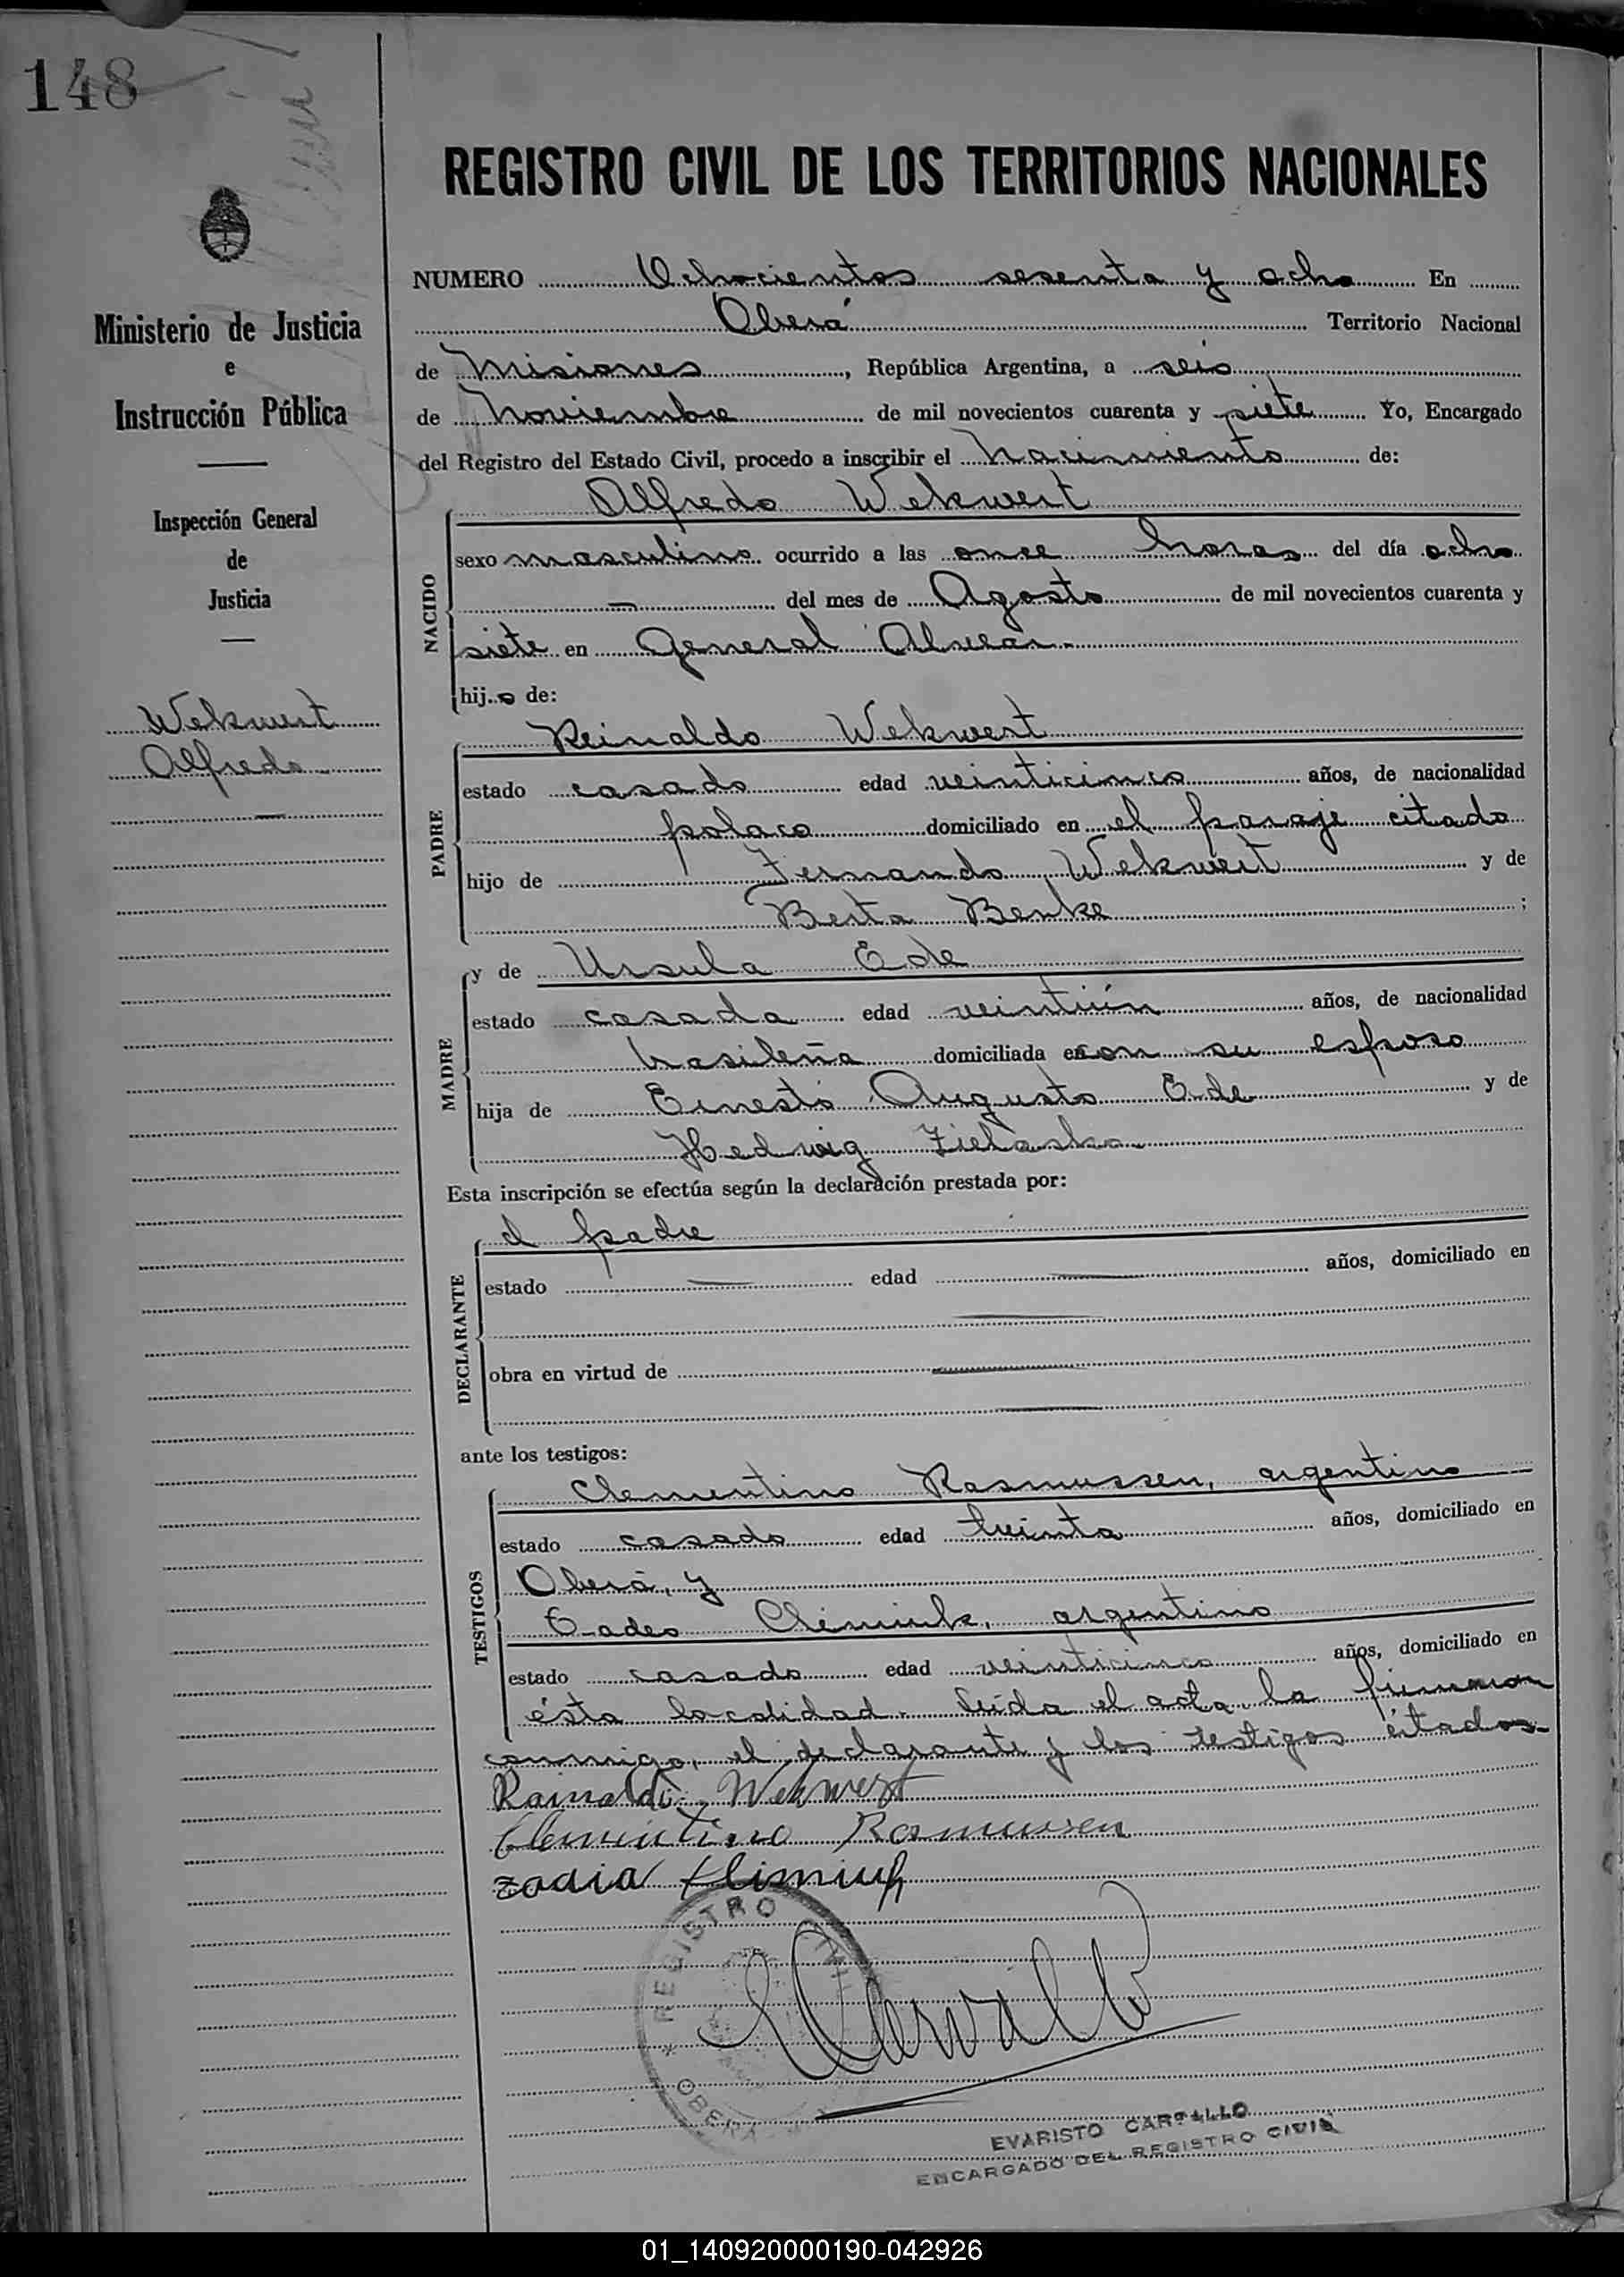 148
REGISTRO CIVIL DE LOS TERRITORIOS NACIONALES
Ministerio de Justicia
e
Instrucción Pública
Inspección General
de
Justicia
Wekwert
Alfredo
NUMERO Ochocientos sesenta y ocho En
Oberá Territorio Nacional
de Misiones, República Argentina, a seis
de Noviembre de mil novecientos cuarenta y siete Yo, Encargado
del Registro del Estado Civil, procedo a inscribir el Nacimiento de:
NACIDO
Alfredo Wekwert
sexo masculino ocurrido a las once horas del día ocho
— del mes de Agosto de mil novecientos cuarenta y
siete en General Alvear.-
hijo de:
PADRE
Reinaldo Wekwert
estado casado edad veinticinco años, de nacionalidad
polaco domiciliado en el paraje citado
hijo de Fernando Wekwert y de
Berta Benke ;
MADRE
y de Ursula Ede
estado casada edad veintiún años, de nacionalidad
brasileña domiciliada con su esposo
hija de Ernesto Augusto Ede y de
Hedwig Zielaska
Esta inscripción se efectúa según la declaración prestada por:
DECLARANTE
el padre
estado — edad — años, domiciliado en
—
obra en virtud de —
—
ante los testigos:
TESTIGOS
Clementino Rasmussen, argentino
estado casado edad treinta años, domiciliado en
Oberá, y
Tadeo Climiuk, argentino
estado casado edad veinticinco años, domiciliado en
ésta localidad. Leída el acta la firmaron
conmigo, el declarante y los testigos citados.-
Wekwert
Clementino Rasmussen
Klimiuk
REGISTRO CIVIL
* OBERA *
EVARISTO CARVALLO
ENCARGADO DEL REGISTRO CIVIL
01_140920000190-042926